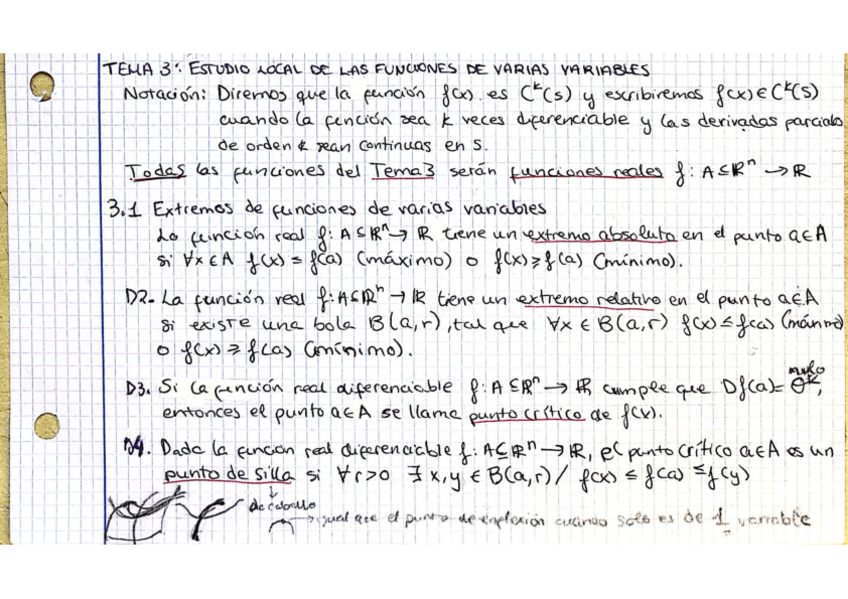 TEMA 3: ESTUDIO LOCAL DE LAS FUNCIONES DE VARIAS VARIABLES
Notación: Diremos que la función f(x) es Cᵏ(S) y escribiremos f(x) ∈ Cᵏ(S)
cuando la fención sea k veces diferenciable y las derivadas parciales
de orden k sean continuas en S.
Todas las funciones del Tema 3 serán funciones reales f: A⊆ℝⁿ → ℝ
3.1 Extremos de funciones de varias variables
La función real f: A⊆ℝⁿ → ℝ tiene un extremo absoluto en el punto a∈A
si ∀x∈A f(x) ≤ f(a) (máximo) o f(x) ≥ f(a) (mínimo).
D2. La función real f: A⊆ℝⁿ → ℝ tiene un extremo relativo en el punto a∈A
si existe una bola B(a,r), tal que ∀x ∈ B(a,r) f(x) ≤ f(a) (máximo)
o f(x) ≥ f(a) (mínimo).
D3. Si la función real diferenciable f: A⊆ℝⁿ → ℝ cumple que Df(a)= nulo
entonces el punto a∈A se llama punto crítico de f(x).
D4. Dada la función real diferenciable f: A⊆ℝⁿ → ℝ, el punto crítico a∈A es un
punto de silla si ∀r>0 ∃ x,y ∈ B(a,r) / f(x) ≤ f(a) ≤ f(y)
↓
de caballo
→ igual que el punto de enflexión cuando solo es de 1 variable